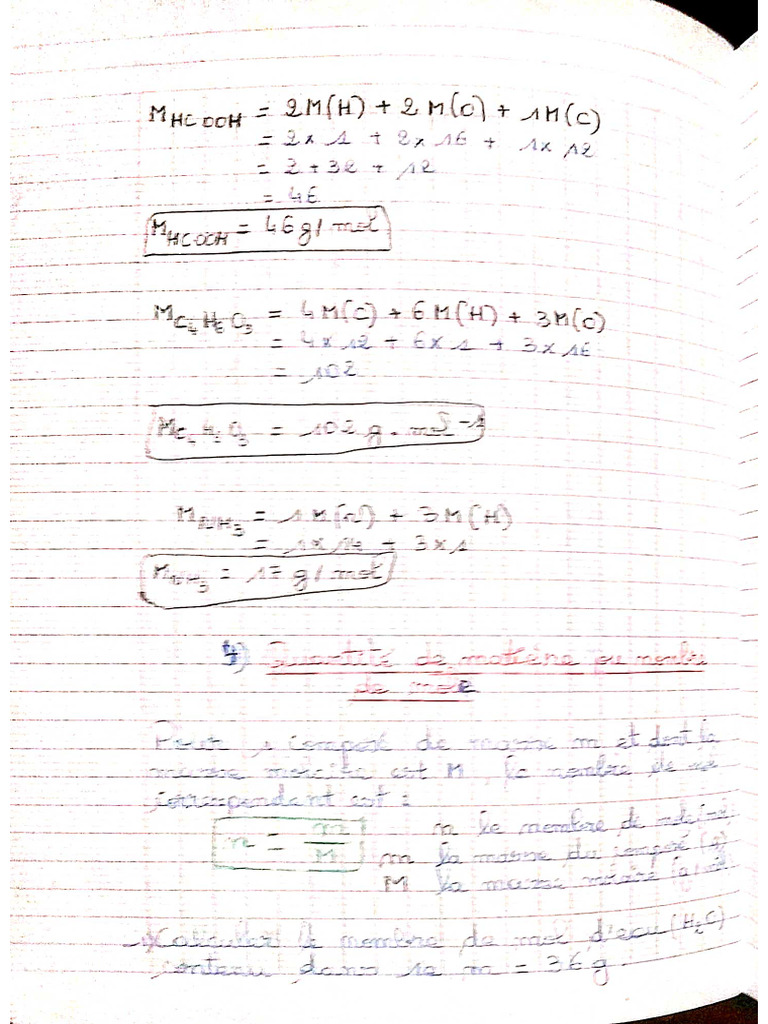 M_HCOOH = 2M(H) + 2M(O) + 1M(C)
= 2×1 + 2×16 + 1×12
= 2 + 32 + 12
= 46
M_HCOOH = 46 g/mol
M_C4H6O3 = 4M(C) + 6M(H) + 3M(O)
= 4×12 + 6×1 + 3×16
= 102
M_C4H6O3 = 102 g.mol⁻¹
M_NH3 = 1M(n) + 3M(H)
= 1×14 + 3×1
M_NH3 = 17 g/mol
4) Quantité de matière ou nombre
de mole
Pour 1 composé de masse m et dont la
masse molaire est M, le nombre de
correspondant est :
n = m/M n le nombre de
m la masse du composé (g)
M la masse molaire
Calculer le nombre de mol d'eau (H2O)
contenu dans 1a m = 36 g.